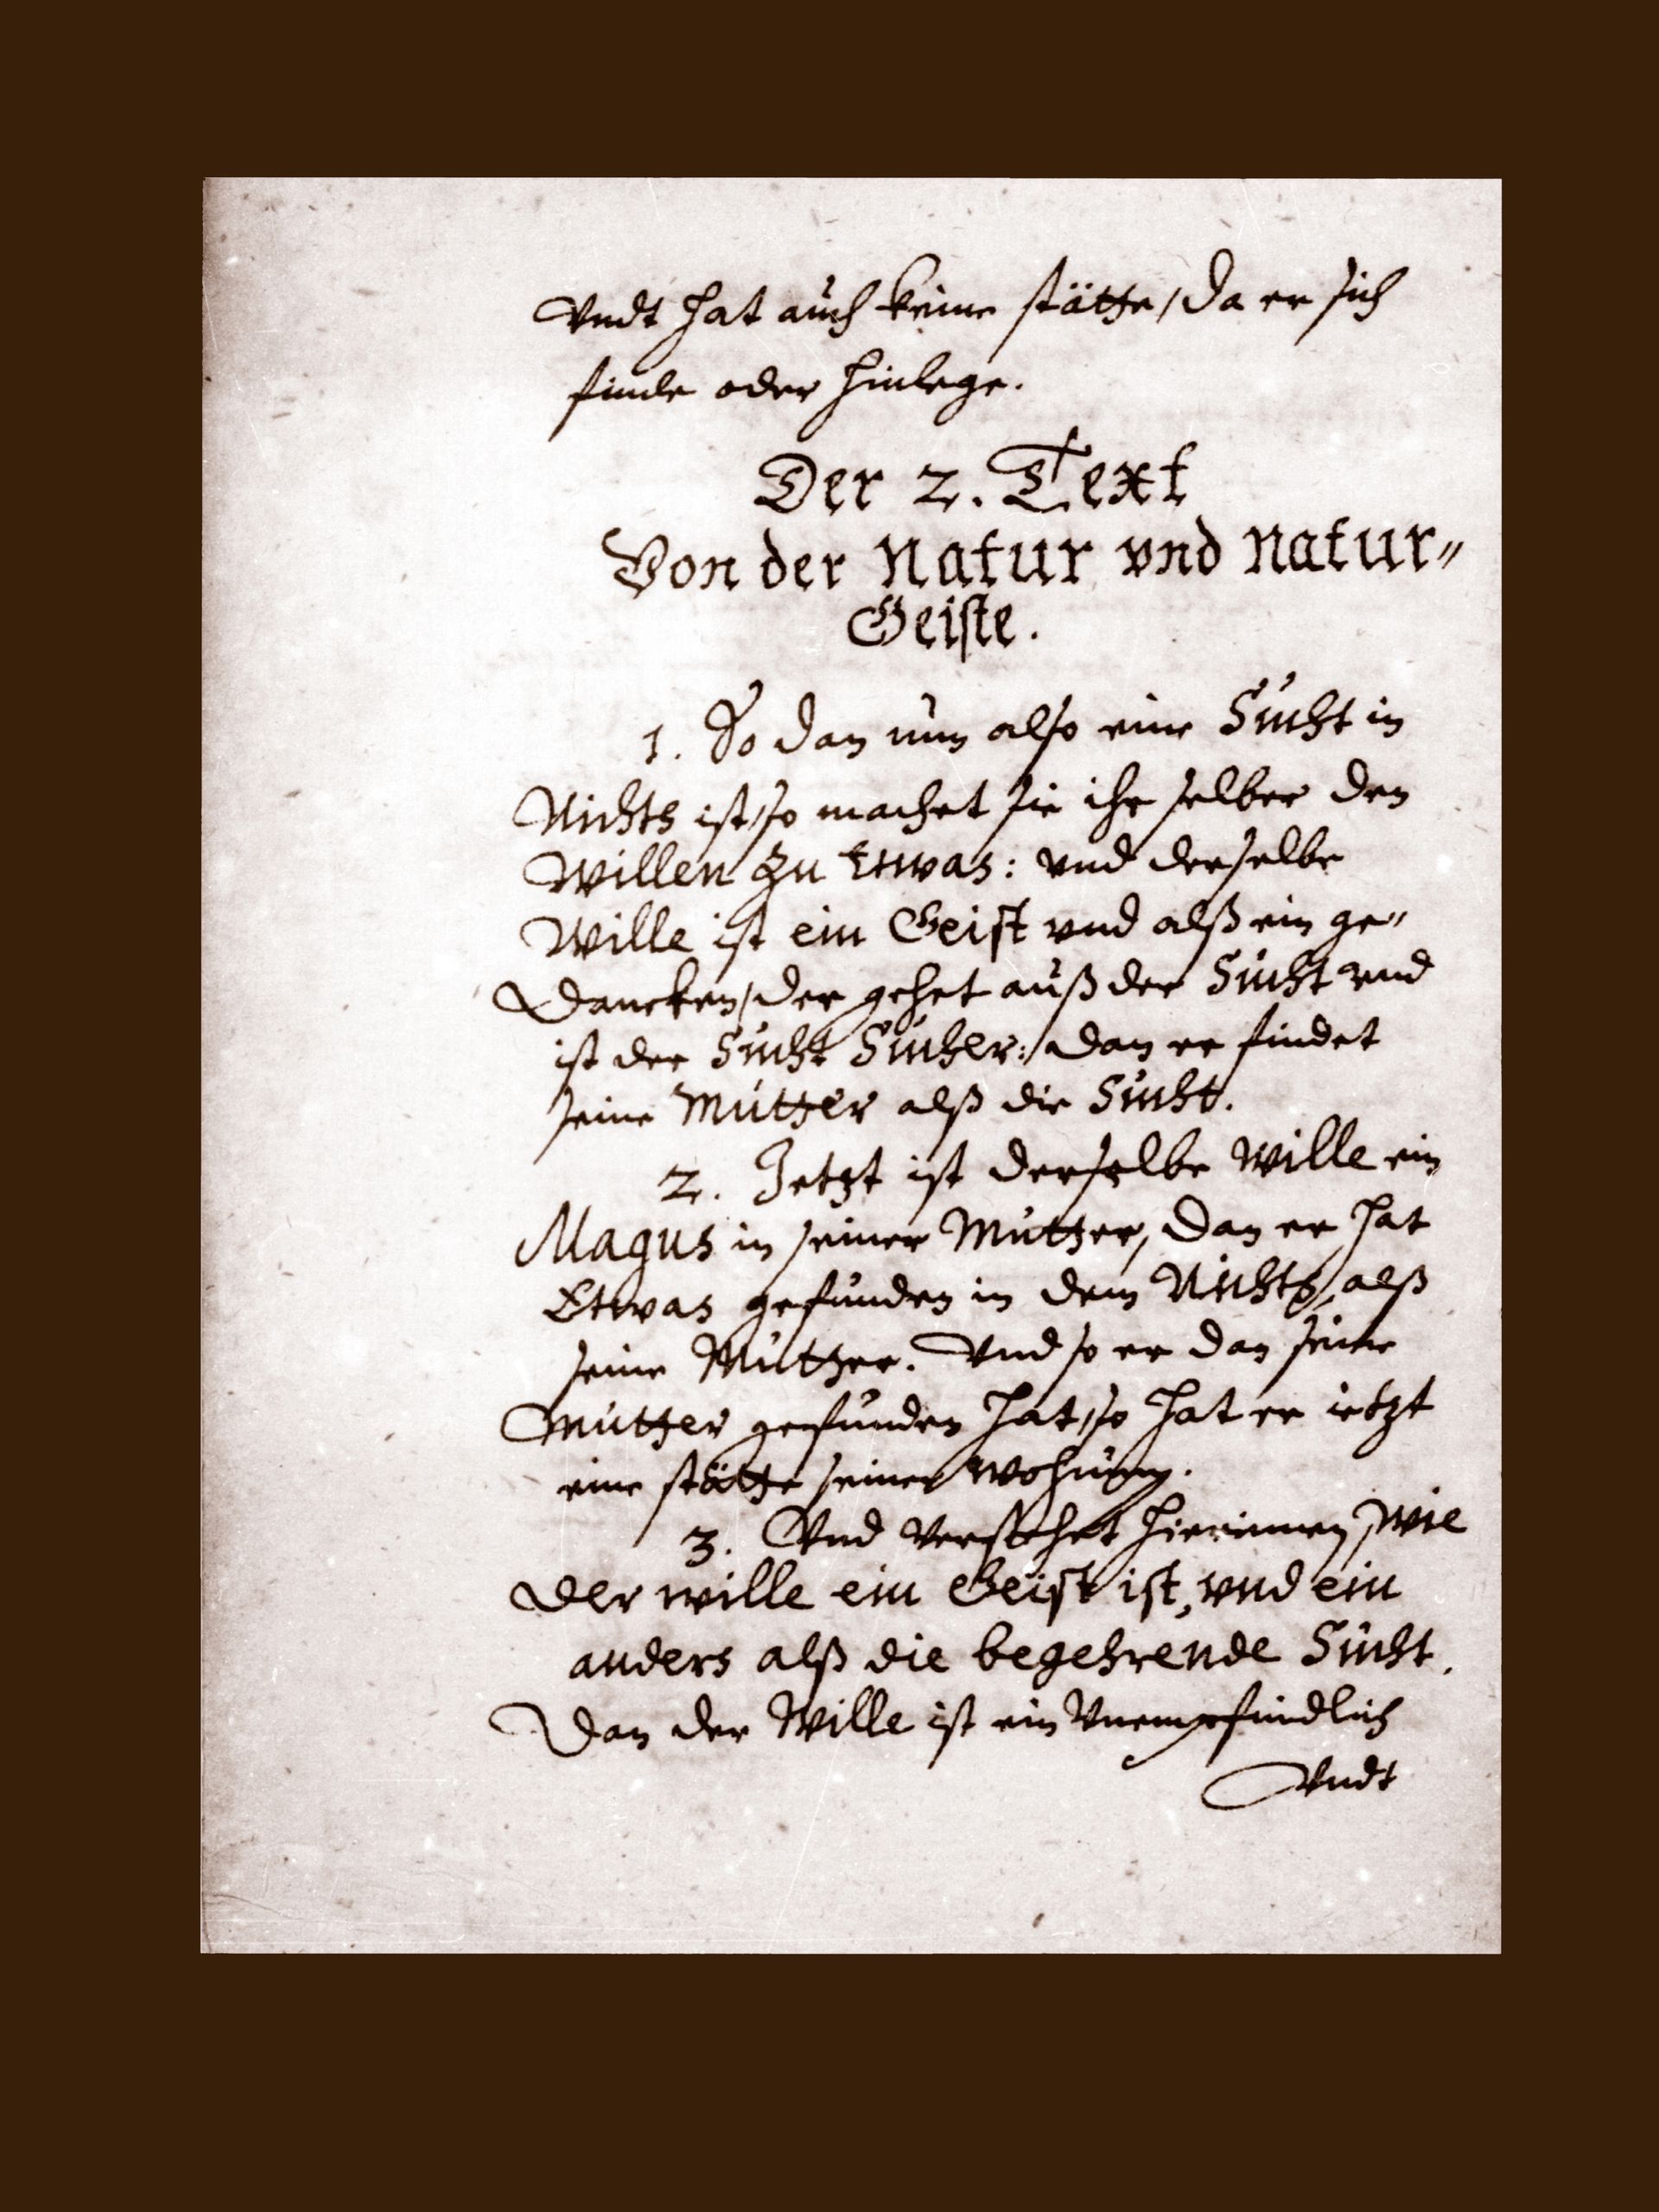 Vndt hat auch keine stätte/ da er sich
finde oder hinlege.
Der 2. Text
Von der Natur vnd Natur=
Geiste.
1. So dan nun also eine Sucht in
Nichts ist, so machet sie ihr selber den
Willen zu Etwas: vnd derselbe
Wille ist ein Geist vnd alß ein ge=
dancken/ der gehet auß der Sucht vnd
ist der Sucht Sucher: dan er findet
seine Mutter alß die Sucht.
2. Jetzt ist derselbe Wille ein
Magus in seiner Mutter, dan er hat
Etwas gefunden in dem Nichts, alß
seine Mutter. Vnd so er dan seine
Mutter gefunden hat, so hat er ietzt
eine stätte seiner Wohnung.
3. Vnd verstehet hierinnen, wie
der wille ein Geist ist, vnd ein
anders alß die begehrende Sucht.
Dan der Wille ist ein Vnempfindlich
Vndt